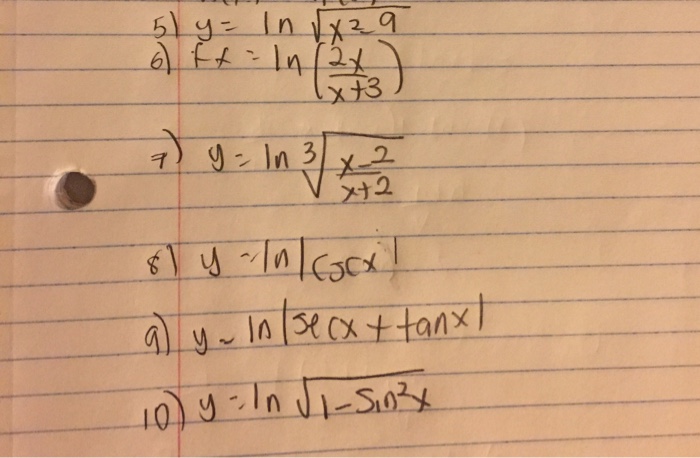 5) y = ln √(x² - 9)
6) fx = ln (2x/x+3)
7) y = ln ³√(x-2/x+2)
8) y = ln |cscx|
9) y = ln |secx + tanx|
10) y = ln √(1 - sin²x)